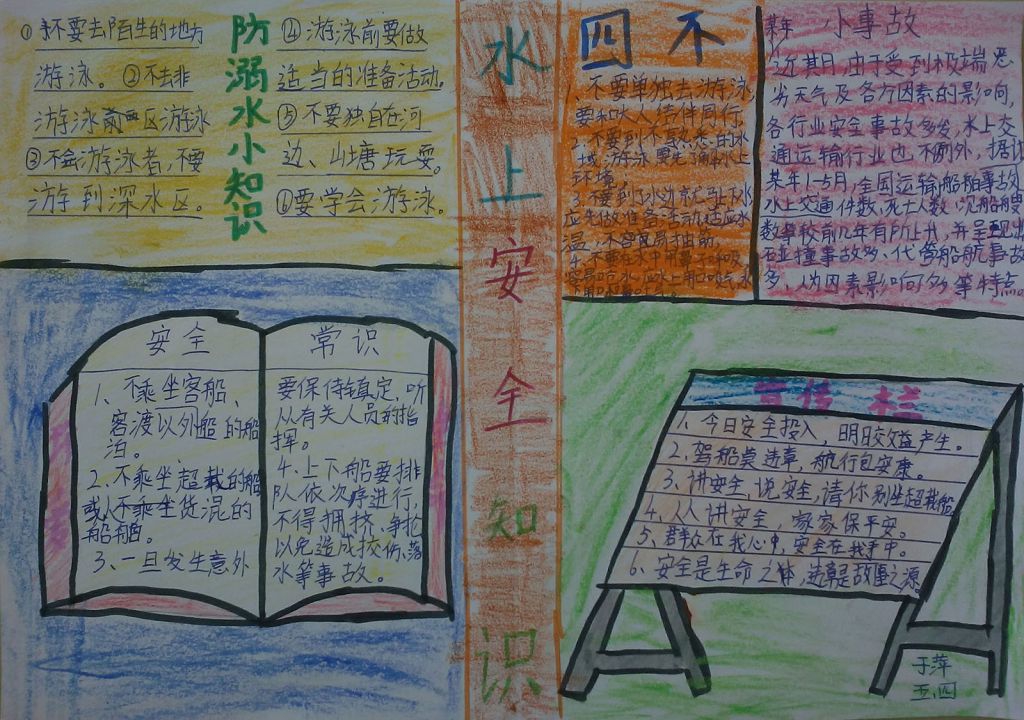 防溺水小知识
①不要去陌生的地方
游泳。②不去非
游泳区游泳
③不会游泳者,不要
游到深水区。
④游泳前要做
适当的准备活动。
⑤不要独自在河
边、山塘玩耍。
⑥要学会游泳。
水上安全知识
四不
1、不要单独去游泳,
要和大人结伴同行
2、不要到不熟悉的水
域游泳,要先了解水上
环境;
3、不要到了水边就马上下水
应先做准备活动适应水
温,不容易抽筋
4、不要在水中
小事故
近某日,由于受到极端恶
劣天气及各方因素的影响,
各行业安全事故多发,水上交
通运输行业也不例外,据计
某年1-5月,全国运输船舶事故
水上交通件数、死亡人数、沉船艘
数等较前几年有所上升,并呈现出
碰撞事故多、代管船航事故
多、人为因素影响多等特点。
安全
1、不乘坐客船、
客渡以外船的船
泊。
2、不乘坐超载的船
或人不乘坐货混的
船舶。
3、一旦发生意外
常识
要保持镇定,听
从有关人员的指
挥。
4、上下船要排
队依次序进行,
不得拥挤、争抢
以免造成挤伤、落
水等事故。
宣传栏
1、今日安全投入,明日效益产生。
2、驾船莫违章,航行包安康。
3、讲安全,说安全,请你别坐超载船
4、人人讲安全,家家保平安。
5、群众在我心中,安全在我手中。
6、安全是生命之体,违章是故里之源
于萍
五、四